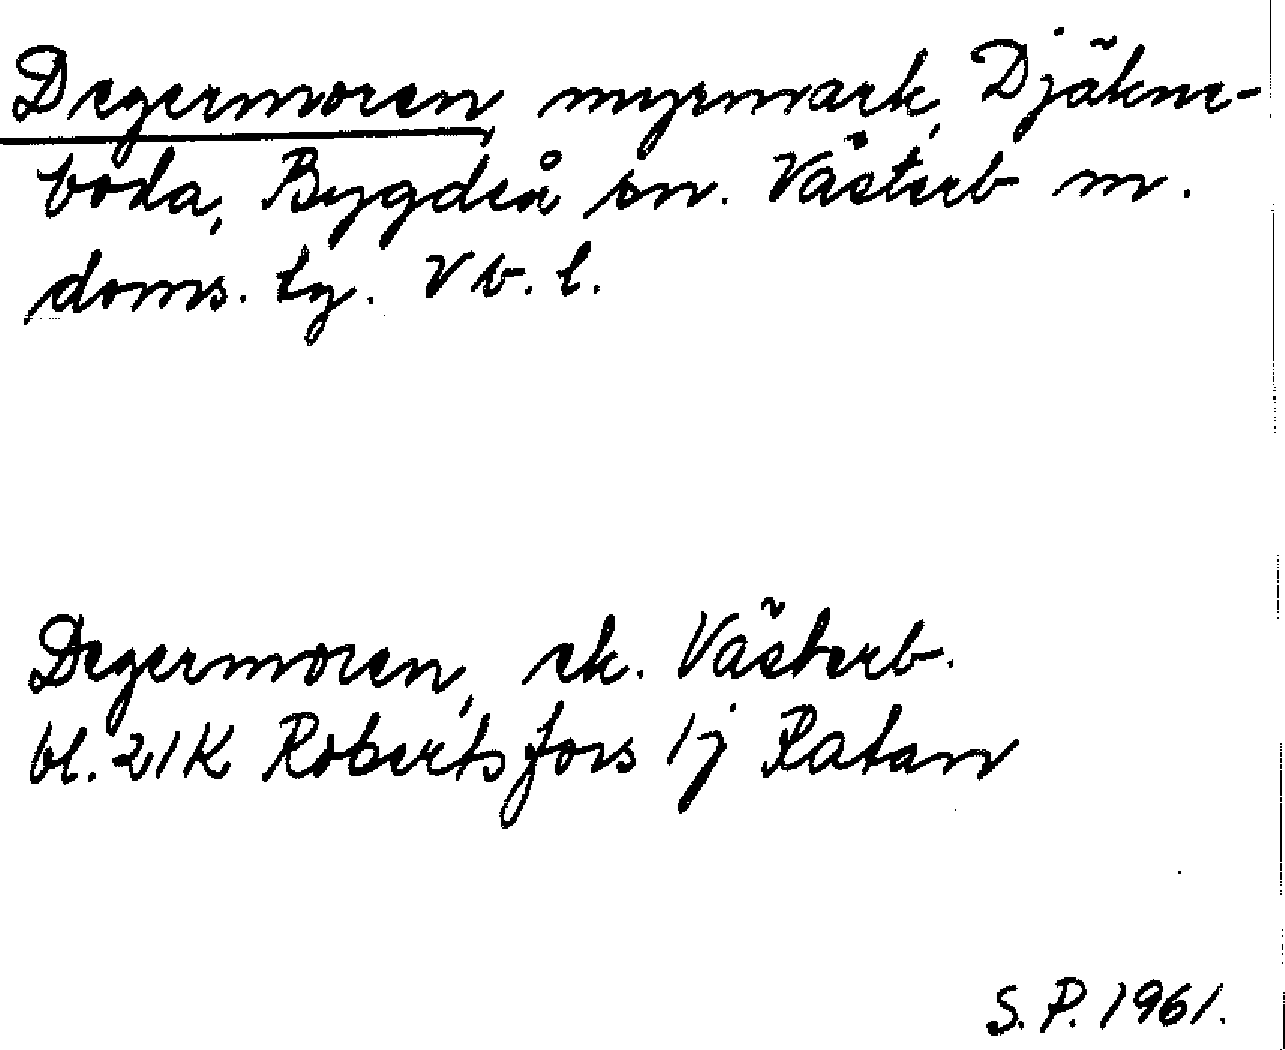 Degermoren, myrmark, Djäkne-
boda, Bygdeå sn. Västerb m.
doms. lg. Vb. l.
Degermoren, ek. Västerb.
bl. 21K Robertsfors 1j Ratan
S.P. 1961.